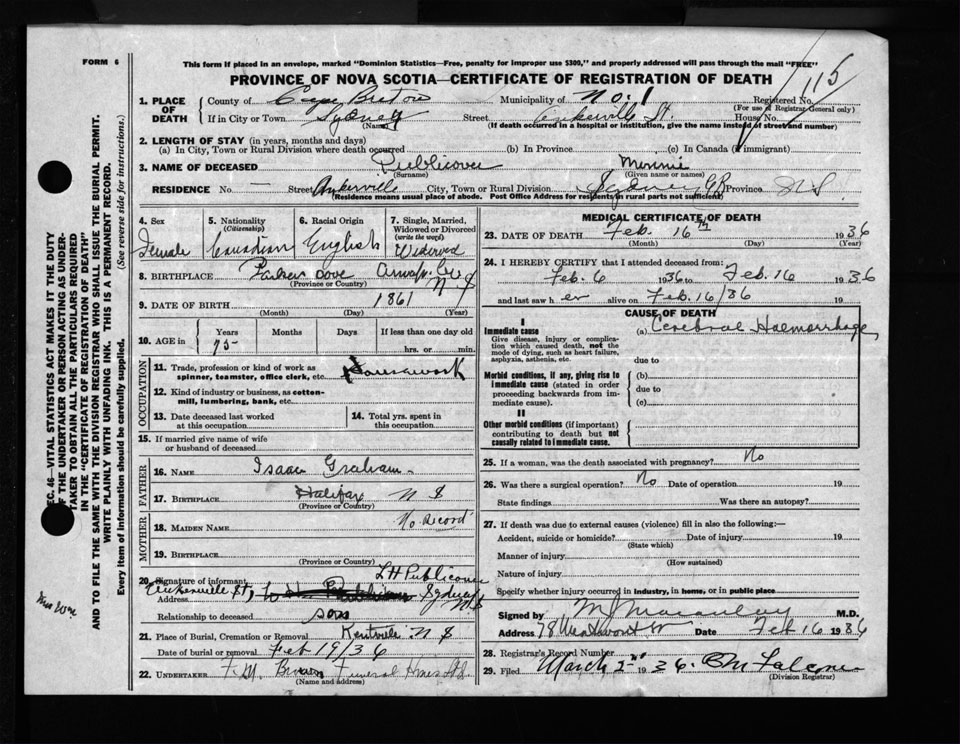 FORM 6
This form if placed in an envelope, marked "Dominion Statistics—Free, penalty for improper use $300," and properly addressed will pass through the mail "FREE"
PROVINCE OF NOVA SCOTIA—CERTIFICATE OF REGISTRATION OF DEATH
1. PLACE OF DEATH
County of Cape Breton Municipality of No. 1 Registered No. 115
(For use of Registrar General only)
If in City or Town Sydney Street Ankerville St. House No.
(Name) (If death occurred in a hospital or institution, give the name instead of street and number)
2. LENGTH OF STAY (in years, months and days)
(a) In City, Town or Rural Division where death occurred (b) In Province (c) In Canada (if immigrant)
3. NAME OF DECEASED Publicover Minnie
(Surname) (Given name or names)
RESIDENCE No. — Street Ankerville City, Town or Rural Division Sydney CB Province N S
(Residence means usual place of abode. Post Office Address for residents in rural parts not sufficient)
4. Sex 5. Nationality 6. Racial Origin 7. Single, Married, Widowed or Divorced
(Citizenship) (write the word)
Female Canadian English Widowed
8. BIRTHPLACE Parkers Cove Annap. Co N S
(Province or Country)
9. DATE OF BIRTH 1861
(Month) (Day) (Year)
10. AGE in Years Months Days If less than one day old
75 hrs. or min.
OCCUPATION
11. Trade, profession or kind of work as spinner, teamster, office clerk, etc. Housework
12. Kind of industry or business, as cotton-mill, lumbering, bank, etc.
13. Date deceased last worked at this occupation 14. Total yrs. spent in this occupation
15. If married give name of wife or husband of deceased
FATHER
16. NAME Isaac Graham
17. BIRTHPLACE Halifax N S
(Province or Country)
MOTHER
18. MAIDEN NAME No Record
19. BIRTHPLACE
(Province or Country)
20. Signature of informant L H Publicover
Address Ankerville St, Sydney N S
Relationship to deceased son
21. Place of Burial, Cremation or Removal Kentville N S
Date of burial or removal Feb 19/36
22. UNDERTAKER F. M. Brown Funeral Home Ltd.
(Name and address)
MEDICAL CERTIFICATE OF DEATH
23. DATE OF DEATH Feb. 16th 1936
(Month) (Day) (Year)
24. I HEREBY CERTIFY that I attended deceased from:
Feb. 6 1936 to Feb. 16 1936
and last saw her alive on Feb. 16/36 19
CAUSE OF DEATH
I
Immediate cause (a) Cerebral Haemorrhage
Give disease, injury or complication which caused death, not the mode of dying, such as heart failure, asphyxia, asthenia, etc.
due to
Morbid conditions, if any, giving rise to immediate cause (stated in order proceeding backwards from immediate cause).
(b)
due to
(c)
II
Other morbid conditions (if important) contributing to death but not causally related to immediate cause.
25. If a woman, was the death associated with pregnancy? No
26. Was there a surgical operation? No Date of operation 19
State findings Was there an autopsy?
27. If death was due to external causes (violence) fill in also the following:—
Accident, suicide or homicide? Date of injury 19
(State which)
Manner of injury
(How sustained)
Nature of injury
Specify whether injury occurred in industry, in home, or in public place
Signed by M J Macaulay M.D.
Address 78 Wentworth Date Feb 16 1936
28. Registrar's Record Number
29. Filed March 2nd 1936
(Division Registrar)
SEC. 46—VITAL STATISTICS ACT MAKES IT THE DUTY
OF THE UNDERTAKER OR PERSON ACTING AS UNDER-
TAKER TO OBTAIN ALL THE PARTICULARS REQUIRED
IN THE "CERTIFICATE OF REGISTRATION OF DEATH"
AND TO FILE THE SAME WITH THE DIVISION REGISTRAR WHO SHALL ISSUE THE BURIAL PERMIT.
WRITE PLAINLY WITH UNFADING INK. THIS IS A PERMANENT RECORD.
Every item of information should be carefully supplied. (See reverse side for instructions.)